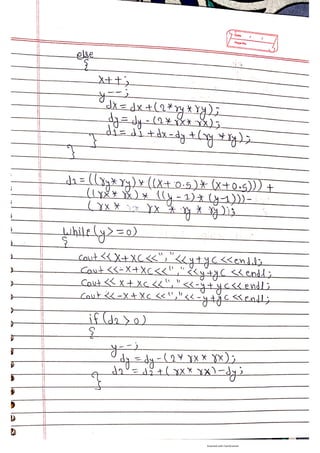 else
{
x++;
y--;
dx = dx + (2 * ry * ry);
dy = dy - (2 * rx * rx);
d1 = d1 + dx - dy + (ry * ry);
}
}
d2 = ((ry * ry) * ((x + 0.5) * (x + 0.5))) +
((rx * rx) * ((y - 1) * (y - 1))) -
(rx * rx * ry * ry);
while (y >= 0)
{
cout << x + xc << "," << y + yc << endl;
cout << -x + xc << "," << y + yc << endl;
cout << x + xc << "," << -y + yc << endl;
cout << -x + xc << "," << -y + yc << endl;
if (d2 > 0)
{
y--;
dy = dy - (2 * rx * rx);
d2 = d2 + (rx * rx) - dy;
}